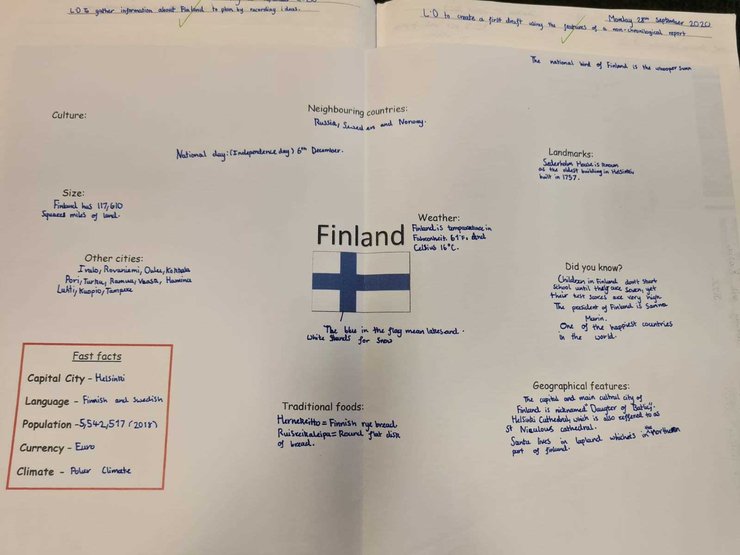 L.O To gather information about Finland to plan by recording ideas.
L.O to create a first draft using the features of a non-chronological report
Monday 28th September 2020
The national bird of Finland is the whooper swan
Culture:
Neighbouring countries:
Russia, Sweden and Norway.
National day: (Independence day) 6th December.
Landmarks:
Sederholm House is known
as the oldest building in Helsinki
built in 1757.
Size:
Finland has 117,610
Squares miles of land.
Weather:
Finland is temperature in
Fahrenheit 61°F. And
Celsius 16°C.
Finland
Other cities:
Ivalo, Rovaniemi, Oulu, Kokkola
Pori, Turku, Raunua, Vaasa, Hamina
Lahti, Kuopio, Tampere
Did you know?
Children in Finland don't start
School until they are Seven, yet
their test scores are very high.
The president of Finland is Sanna
Marin.
One of the happiest countries
in the world.
The blue in the flag mean lakes and
white stands for snow
Fast facts
Capital City - Helsinki
Language - Finnish and Swedish
Population - 5,542,517 (2018)
Currency - Euro
Climate - Polar Climate
Traditional foods:
Hernekeitto = Finnish rye bread
Ruisreikaleipa = Round flat disk
of bread.
Geographical features:
The capital and main cultral city of
Finland is nicknamed "Daugter of Baltic".
Helsinki Cathedral, which is also reffered to as
St Nicalous cathedral.
Santa lives in lapland which is in the Northern
part of finland.